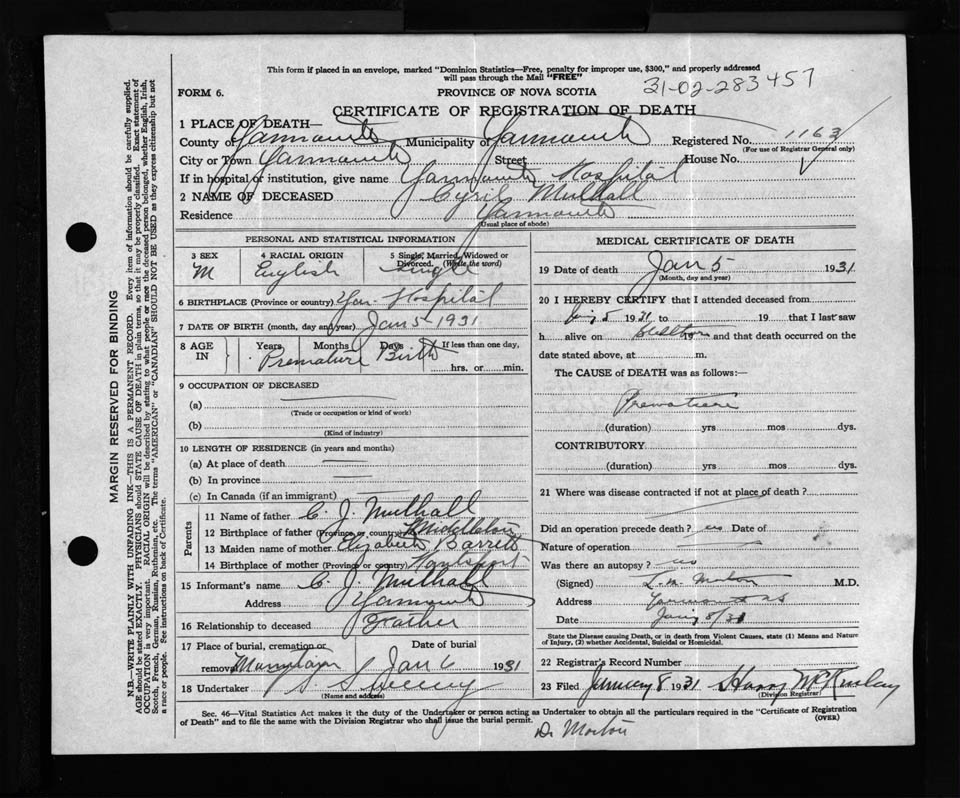 This form if placed in an envelope, marked "Dominion Statistics—Free, penalty for improper use, $300," and properly addressed
will pass through the Mail "FREE"
31-02-283457
FORM 6.
PROVINCE OF NOVA SCOTIA
CERTIFICATE OF REGISTRATION OF DEATH
1 PLACE OF DEATH—
County of Yarmouth Municipality of Yarmouth Registered No. 1163
(For use of Registrar General only)
City or Town Yarmouth Street House No.
If in hospital or institution, give name Yarmouth Hospital
2 NAME OF DECEASED Cyril Mulhall
Residence Yarmouth
(Usual place of abode)
PERSONAL AND STATISTICAL INFORMATION
3 SEX 4 RACIAL ORIGIN 5 Single, Married, Widowed or Divorced. (Write the word)
M English Single
6 BIRTHPLACE (Province or country) Yar. Hospital
7 DATE OF BIRTH (month, day and year) Jan 5 1931
8 AGE IN Years Months Days If less than one day,
Premature Birth hrs. or min.
9 OCCUPATION OF DECEASED
(a)
(Trade or occupation or kind of work)
(b)
(Kind of industry)
10 LENGTH OF RESIDENCE (in years and months)
(a) At place of death
(b) In province
(c) In Canada (if an immigrant)
Parents
11 Name of father C. J. Mulhall
12 Birthplace of father (Province or country) Middleton
13 Maiden name of mother Elizabeth Barrett
14 Birthplace of mother (Province or country) Hantsport
15 Informant's name C. J. Mulhall
Address Yarmouth
16 Relationship to deceased Father
17 Place of burial, cremation or removal Date of burial
Jan 6 1931
18 Undertaker Sweeny
(Name and address)
MEDICAL CERTIFICATE OF DEATH
19 Date of death Jan 5 1931
(Month, day and year)
20 I HEREBY CERTIFY that I attended deceased from
Jany 5 1931 to 19 that I last saw
h alive on Stillborn 19 and that death occurred on the
date stated above, at m.
The CAUSE of DEATH was as follows:—
Premature
(duration) yrs mos dys.
CONTRIBUTORY
(duration) yrs mos dys.
21 Where was disease contracted if not at place of death?
Did an operation precede death? no Date of
Nature of operation
Was there an autopsy? no
(Signed) L. M. Morton M.D.
Address Yarmouth NS
Date Jany 8/31
State the Disease causing Death, or in death from Violent Causes, state (1) Means and Nature
of Injury, (2) whether Accidental, Suicidal or Homicidal.
22 Registrar's Record Number
23 Filed January 8 1931 Harry McKinlay
(Division Registrar)
Sec. 46—Vital Statistics Act makes it the duty of the Undertaker or person acting as Undertaker to obtain all the particulars required in the "Certificate of Registration
of Death" and to file the same with the Division Registrar who shall issue the burial permit.
(OVER)
Dr Morton
MARGIN RESERVED FOR BINDING
N.B.—WRITE PLAINLY WITH UNFADING INK—THIS IS A PERMANENT RECORD. Every item of information should be carefully supplied.
AGE should be stated EXACTLY. PHYSICIANS should STATE CAUSE OF DEATH in plain terms, so that it may be properly classified. Exact statement of
OCCUPATION is very important. RACIAL ORIGIN will be described by stating to what people or race the deceased person belonged, whether English, Irish,
Scotch, French, German, Russian, Ruthenian, etc. The terms "AMERICAN" or "CANADIAN" SHOULD NOT BE USED as they express citizenship but not
a race or people. See instructions on back of Certificate.